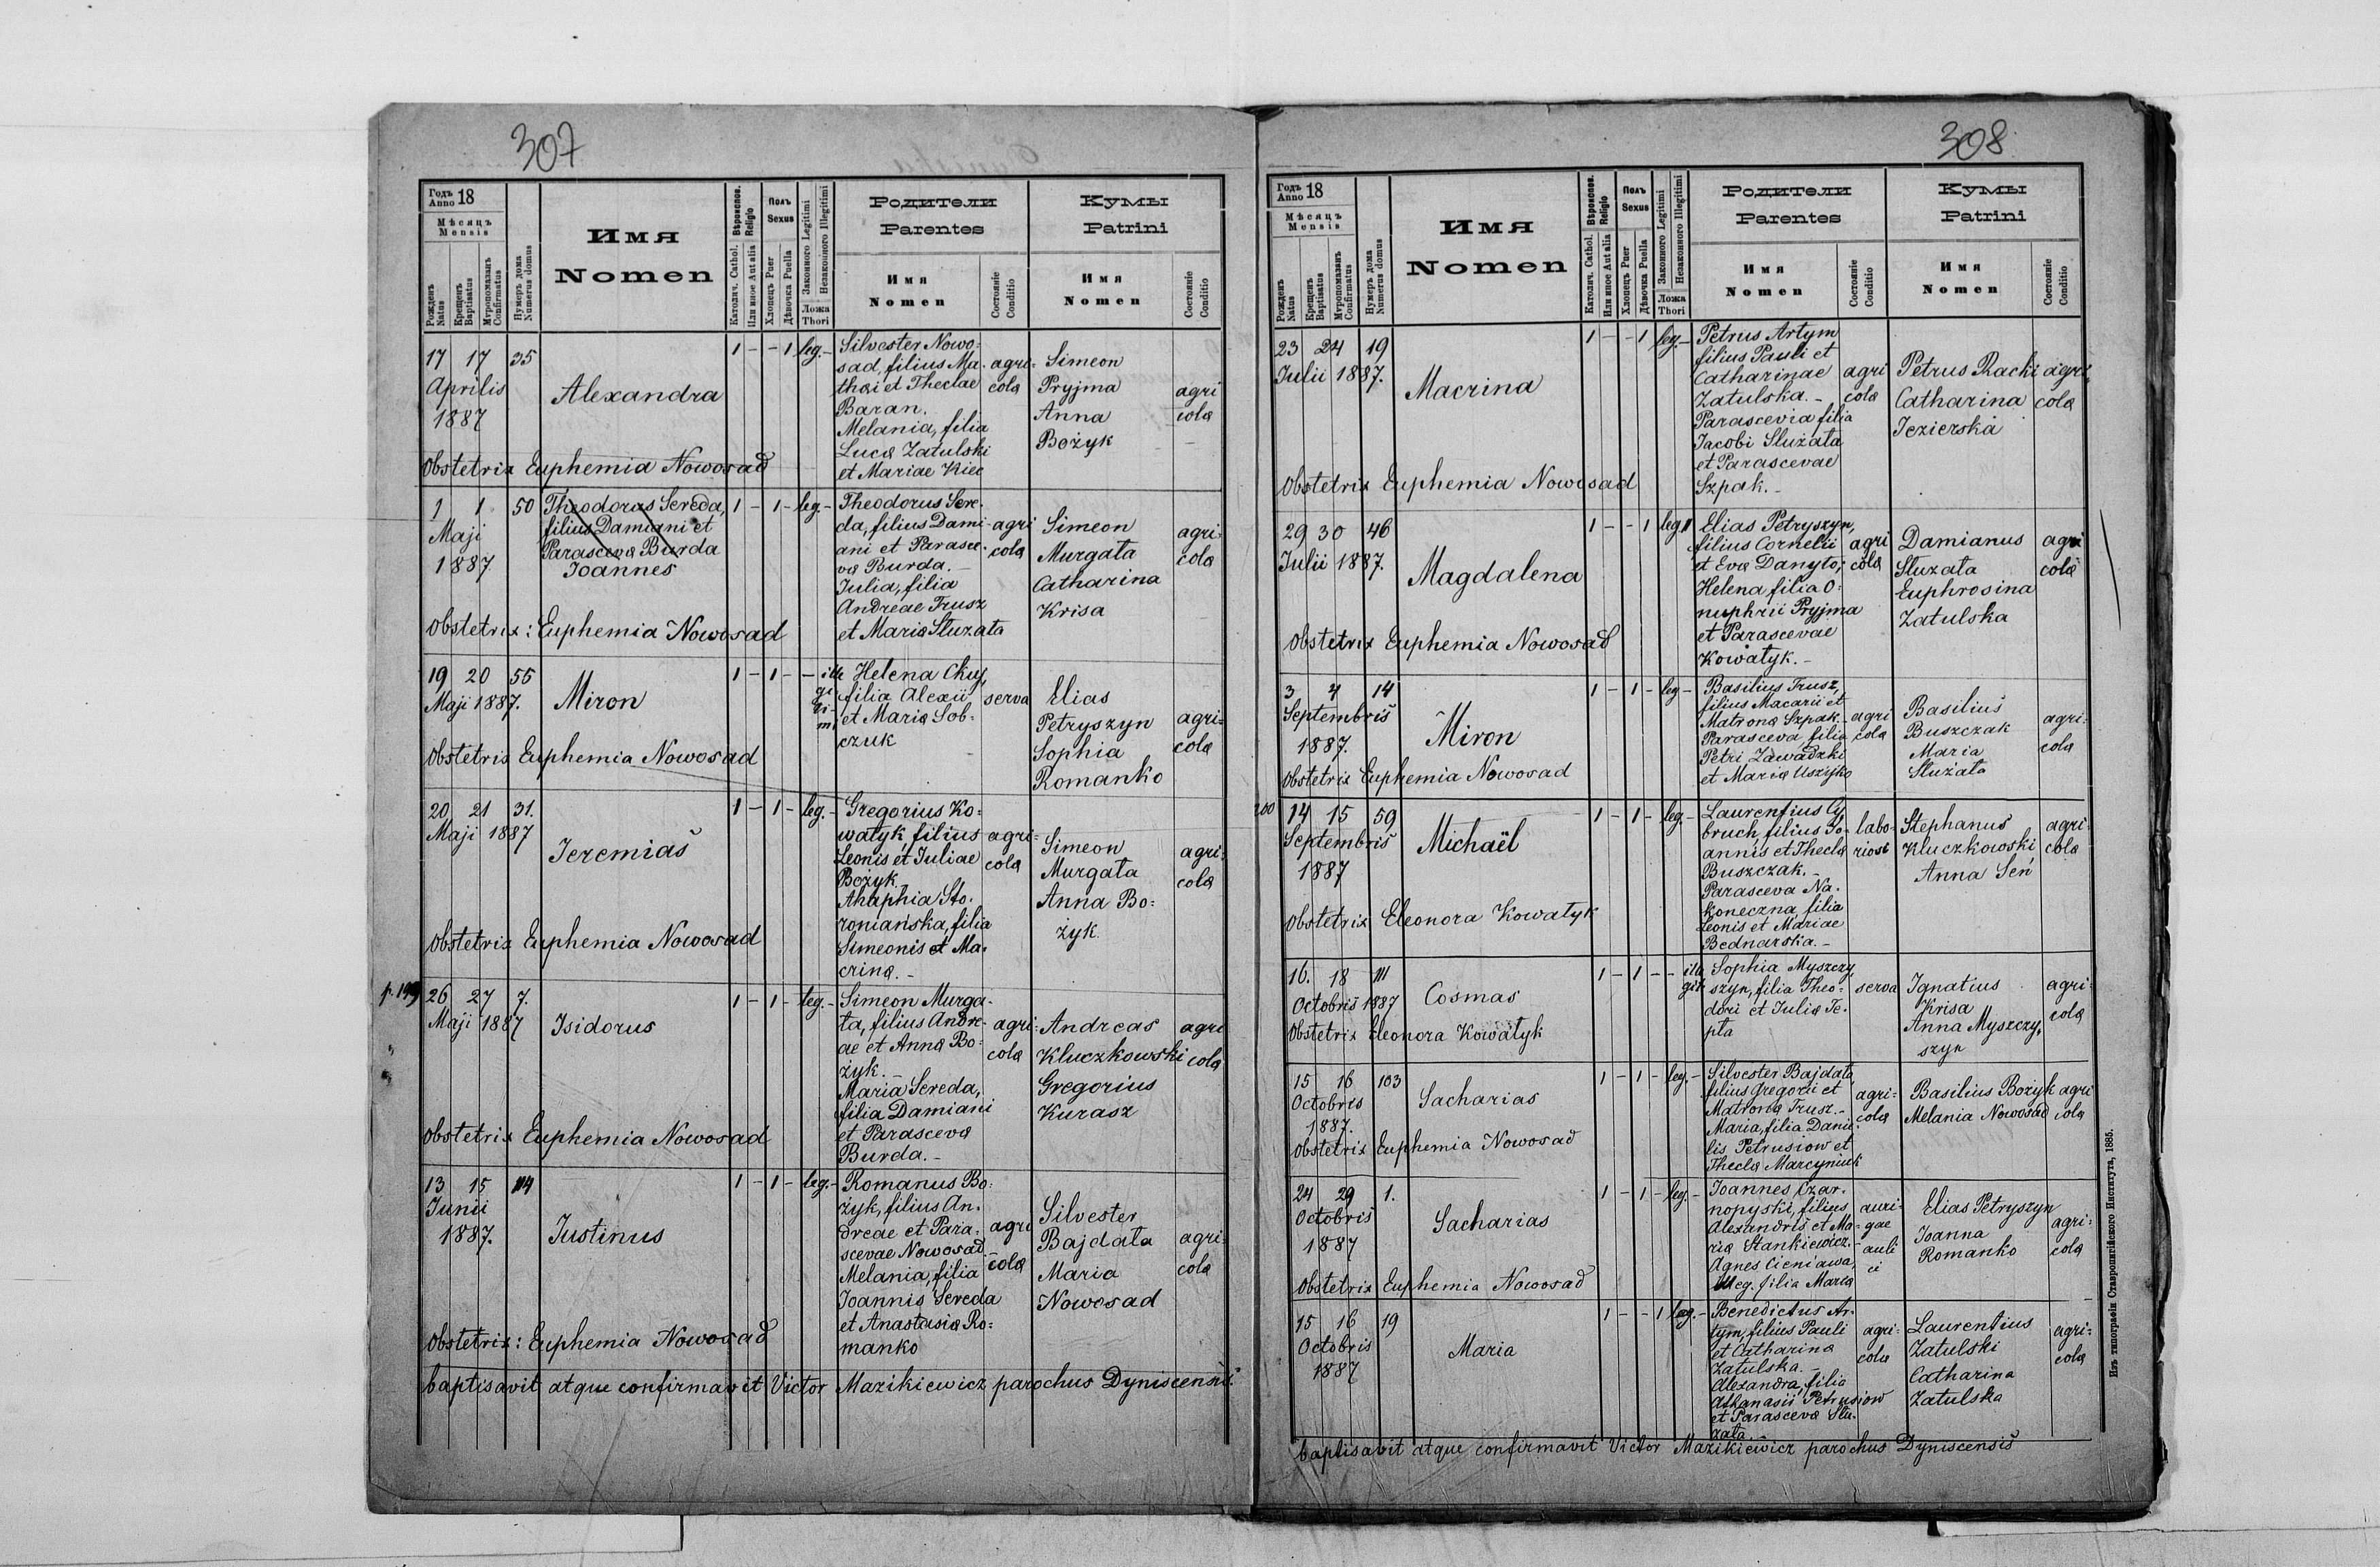 307
Годъ 18
Anno
Мѣсяцъ
Mensis
Рожденъ
Natus
Крещенъ
Baptisatus
Мѵропомазанъ
Confirmatus
Нумеръ дома
Numerus domus
Имя
Nomen
Вѣроиспов.
Religio
Католич. Cathol.
Или иное Aut alia
Полъ
Sexus
Хлопецъ Puer
Дѣвочка Puella
Законного Legitimi
Незаконного Illegitimi
Ложа
Thori
Родители
Parentes
Имя
Nomen
Состояніе
Conditio
Кумы
Patrini
Имя
Nomen
Состояніе
Conditio
17 17 35
Aprilis
1887
Alexandra
1 - - 1 leg. -
Silvester Nowo=
sad, filius Ma-
thæi et Theclae
Baran.
Melania, filia
Lucæ Zatulski
et Mariae Kiec
agri=
colæ
Simeon
Pryjma
Anna
Bożyk
agri
colæ
Obstetrix Euphemia Nowosad
1 1 50
Maji
1887
Theodorus Sereda,
filius Damiani et
Parascevæ Burda
Joannes
1 - 1 - leg. -
Theodorus Sere-
da, filius Dami-
ani et Parasce-
væ Burda. -
Julia, filia
Andreae Trusz
et Mariæ Służała
agri
colæ
Simeon
Murgała
Catharina
Krisa
agri=
colæ
Obstetrix: Euphemia Nowosad
19 20 56
Maji 1887.
Miron
1 - 1 - - ille
gi
ti-
mi
Helena Ckuj,
filia Alexii
et Mariæ Sob-
czuk
serva
Elias
Petryszyn
Sophia
Romanko
agri=
colæ
Obstetrix Euphemia Nowosad
20 21 31.
Maji 1887
Jeremias
1 - 1 - leg. -
Gregorius Ko=
wałyk, filius
Leonis et Juliae
Bożyk,
Ahaphia Sto-
roniańska, filia
Simeonis et Ma-
crinæ. -
agri=
colæ
Simeon
Murgała
Anna Bo=
żyk.
agri=
colæ
Obstetrix Euphemia Nowosad
p. 199
26 27 7.
Maji 1887
Isidorus
1 - 1 - leg. -
Simeon Murga-
ła, filius Andre-
ae et Annæ Bo=
żyk. -
Maria Sereda,
filia Damiani
et Parascevæ
Burda. -
agri=
colæ
Andreas
Kluczkowski
Gregorius
Kurasz
agri
colæ
Obstetrix Euphemia Nowosad
13 15 114
Junii
1887.
Justinus
1 - 1 - leg. -
Romanus Bo=
żyk, filius An-
dreae et Para-
scevae Nowosad. -
Melania, filia
Joannis Sereda
et Anastasiæ Ro=
manko
agri
colæ
Silvester
Bajdała
Maria
Nowosad
agri=
colæ
Obstetrix: Euphemia Nowosad
baptisavit atque confirmavit Victor Mazikiewicz parochus Dyniscensis.
308
Годъ 18
Anno
Мѣсяцъ
Mensis
Рожденъ
Natus
Крещенъ
Baptisatus
Мѵропомазанъ
Confirmatus
Нумеръ дома
Numerus domus
Имя
Nomen
Вѣроиспов.
Religio
Католич. Cathol.
Или иное Aut alia
Полъ
Sexus
Хлопецъ Puer
Дѣвочка Puella
Законного Legitimi
Незаконного Illegitimi
Ложа
Thori
Родители
Parentes
Имя
Nomen
Состояніе
Conditio
Кумы
Patrini
Имя
Nomen
Состояніе
Conditio
23 24 19
Julii 1887.
Macrina
1 - - 1 leg. -
Petrus Artym
filius Pauli et
Catharinae
Zatulska. -
Parascevia filia
Jacobi Służała
et Parascevae
Szpak. -
agri
colæ
Petrus Racki
Catharina
Jezierska
agri,
colæ
Obstetrix Euphemia Nowosad
29 30 46
Julii 1887.
Magdalena
1 - - 1 leg
Elias Petryszyn,
filius Cornelii
et Evæ Danyło;
Helena filia O=
nuphrii Pryjma
et Parascevae
Kowałyk. -
agri
colæ
Damianus
Służała
Euphrosina
Zatulska
agri
colæ
Obstetrix Euphemia Nowosad
3 4 14
Septembris
1887.
Miron
1 - 1 - leg -
Basilius Trusz,
filius Macarii et
Matronæ Szpak. -
Parasceva filia
Petri Zawadzki
et Mariæ Uszyjko
agri
colæ
Basilius
Buszczak
Maria
Służała
agri=
colæ
Obstetrix Euphemia Nowosad
200
14 15 59
Septembris
1887
Michaël
1 - 1 - leg. -
Laurentius Cy,
bruch, filius Jo-
annis et Theclæ
Buszczak. -
Parasceva Na-
koneczna filia
Leonis et Mariae
Bednarska. -
labo-
riosi
Stephanus
Kluczkowski
Anna Seń
agri=
colæ
Obstetrix Eleonora Kowałyk
16. 18 111
Octobris 1887
Cosmas
1 - 1 - - ille
git
Sophia Myszczy,
szyn, filia Theo=
dori et Juliæ Te-
pła
serva
Ignatius
Krisa
Anna Myszczy,
szyn
agri=
colæ
Obstetrix Eleonora Kowałyk
15 16 103
Octobris
1887.
Sacharias
1 - 1 - leg. -
Silvester Bajdała,
filius Gregorii et
Matronæ Trusz. -
Maria, filia Danie-
lis Petrusiow et
Theclæ Marcyniuk
agri=
colæ
Basilius Bożyk
Melania Nowosad
agri
colæ
Obstetrix Euphemia Nowosad
24 29 1.
Octobris
1887
Sacharias
1 - 1 - leg. -
Joannes Czar-
nopyski, filius
Alexandris et Ma-
riæ Stankiewicz. -
Agnes Cieniawa,
illeg. filia Mariæ
auri-
gae
auli
ci
Elias Petryszyn
Joanna
Romanko
agri=
colæ
Obstetrix Euphemia Nowosad
15 16 19
Octobris
1887
Maria
1 - - 1 leg. -
Benedictus Ar-
tym, filius Pauli
et Catharinæ
Zatulska. -
Alexandra, filia
Athanasii Petrusiow
et Parascevæ Słu-
żała. -
agri=
colæ
Laurentius
Zatulski
Catharina
Zatulska
agri=
colæ
baptisavit atque confirmavit Victor Mazikiewicz parochus Dyniscensis
Изъ типографіи Ставропигійского Института, 1885.